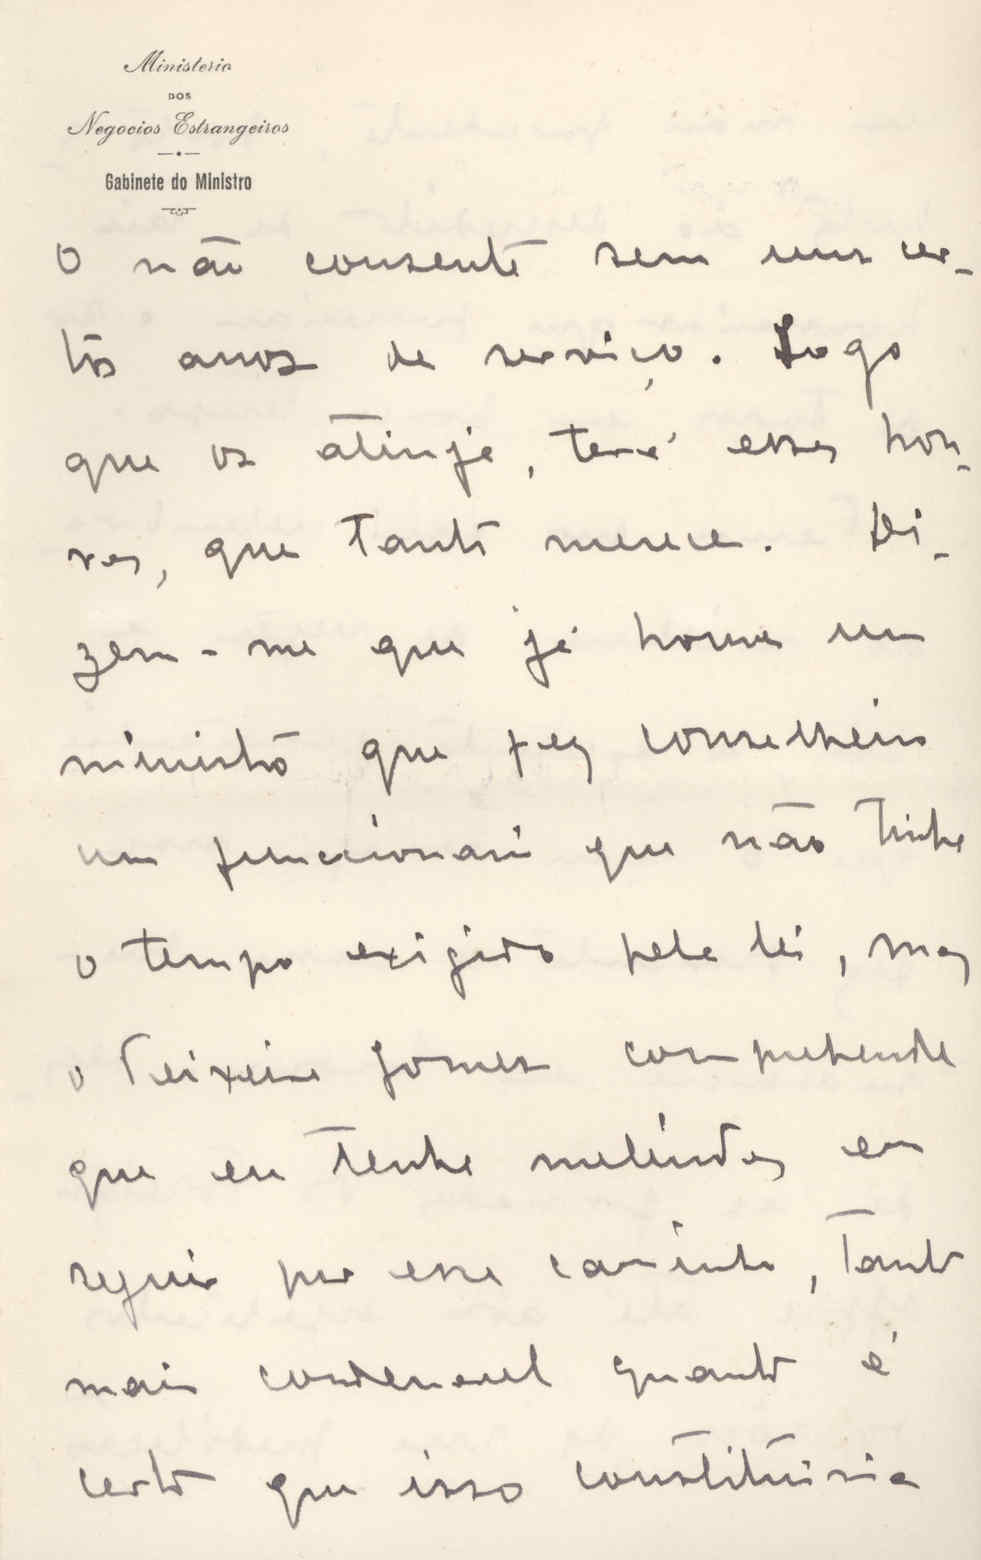 Ministerio
DOS
Negocios Estrangeiros
Gabinete do Ministro
o não consente sem uns cer-
tos anos de serviço. Logo
que os atinja, terá essas hon-
ras, que tanto merece. Di-
zem-me que já houve um
ministro que fez conselheiro
um funccionario que não tinha
o tempo exigido pela lei, mas
o Teixeira Gomes comprehende
que eu tenha melindres em
seguir por esse caminho, tanto
mais condenavel quanto é
certo que isso constituiria